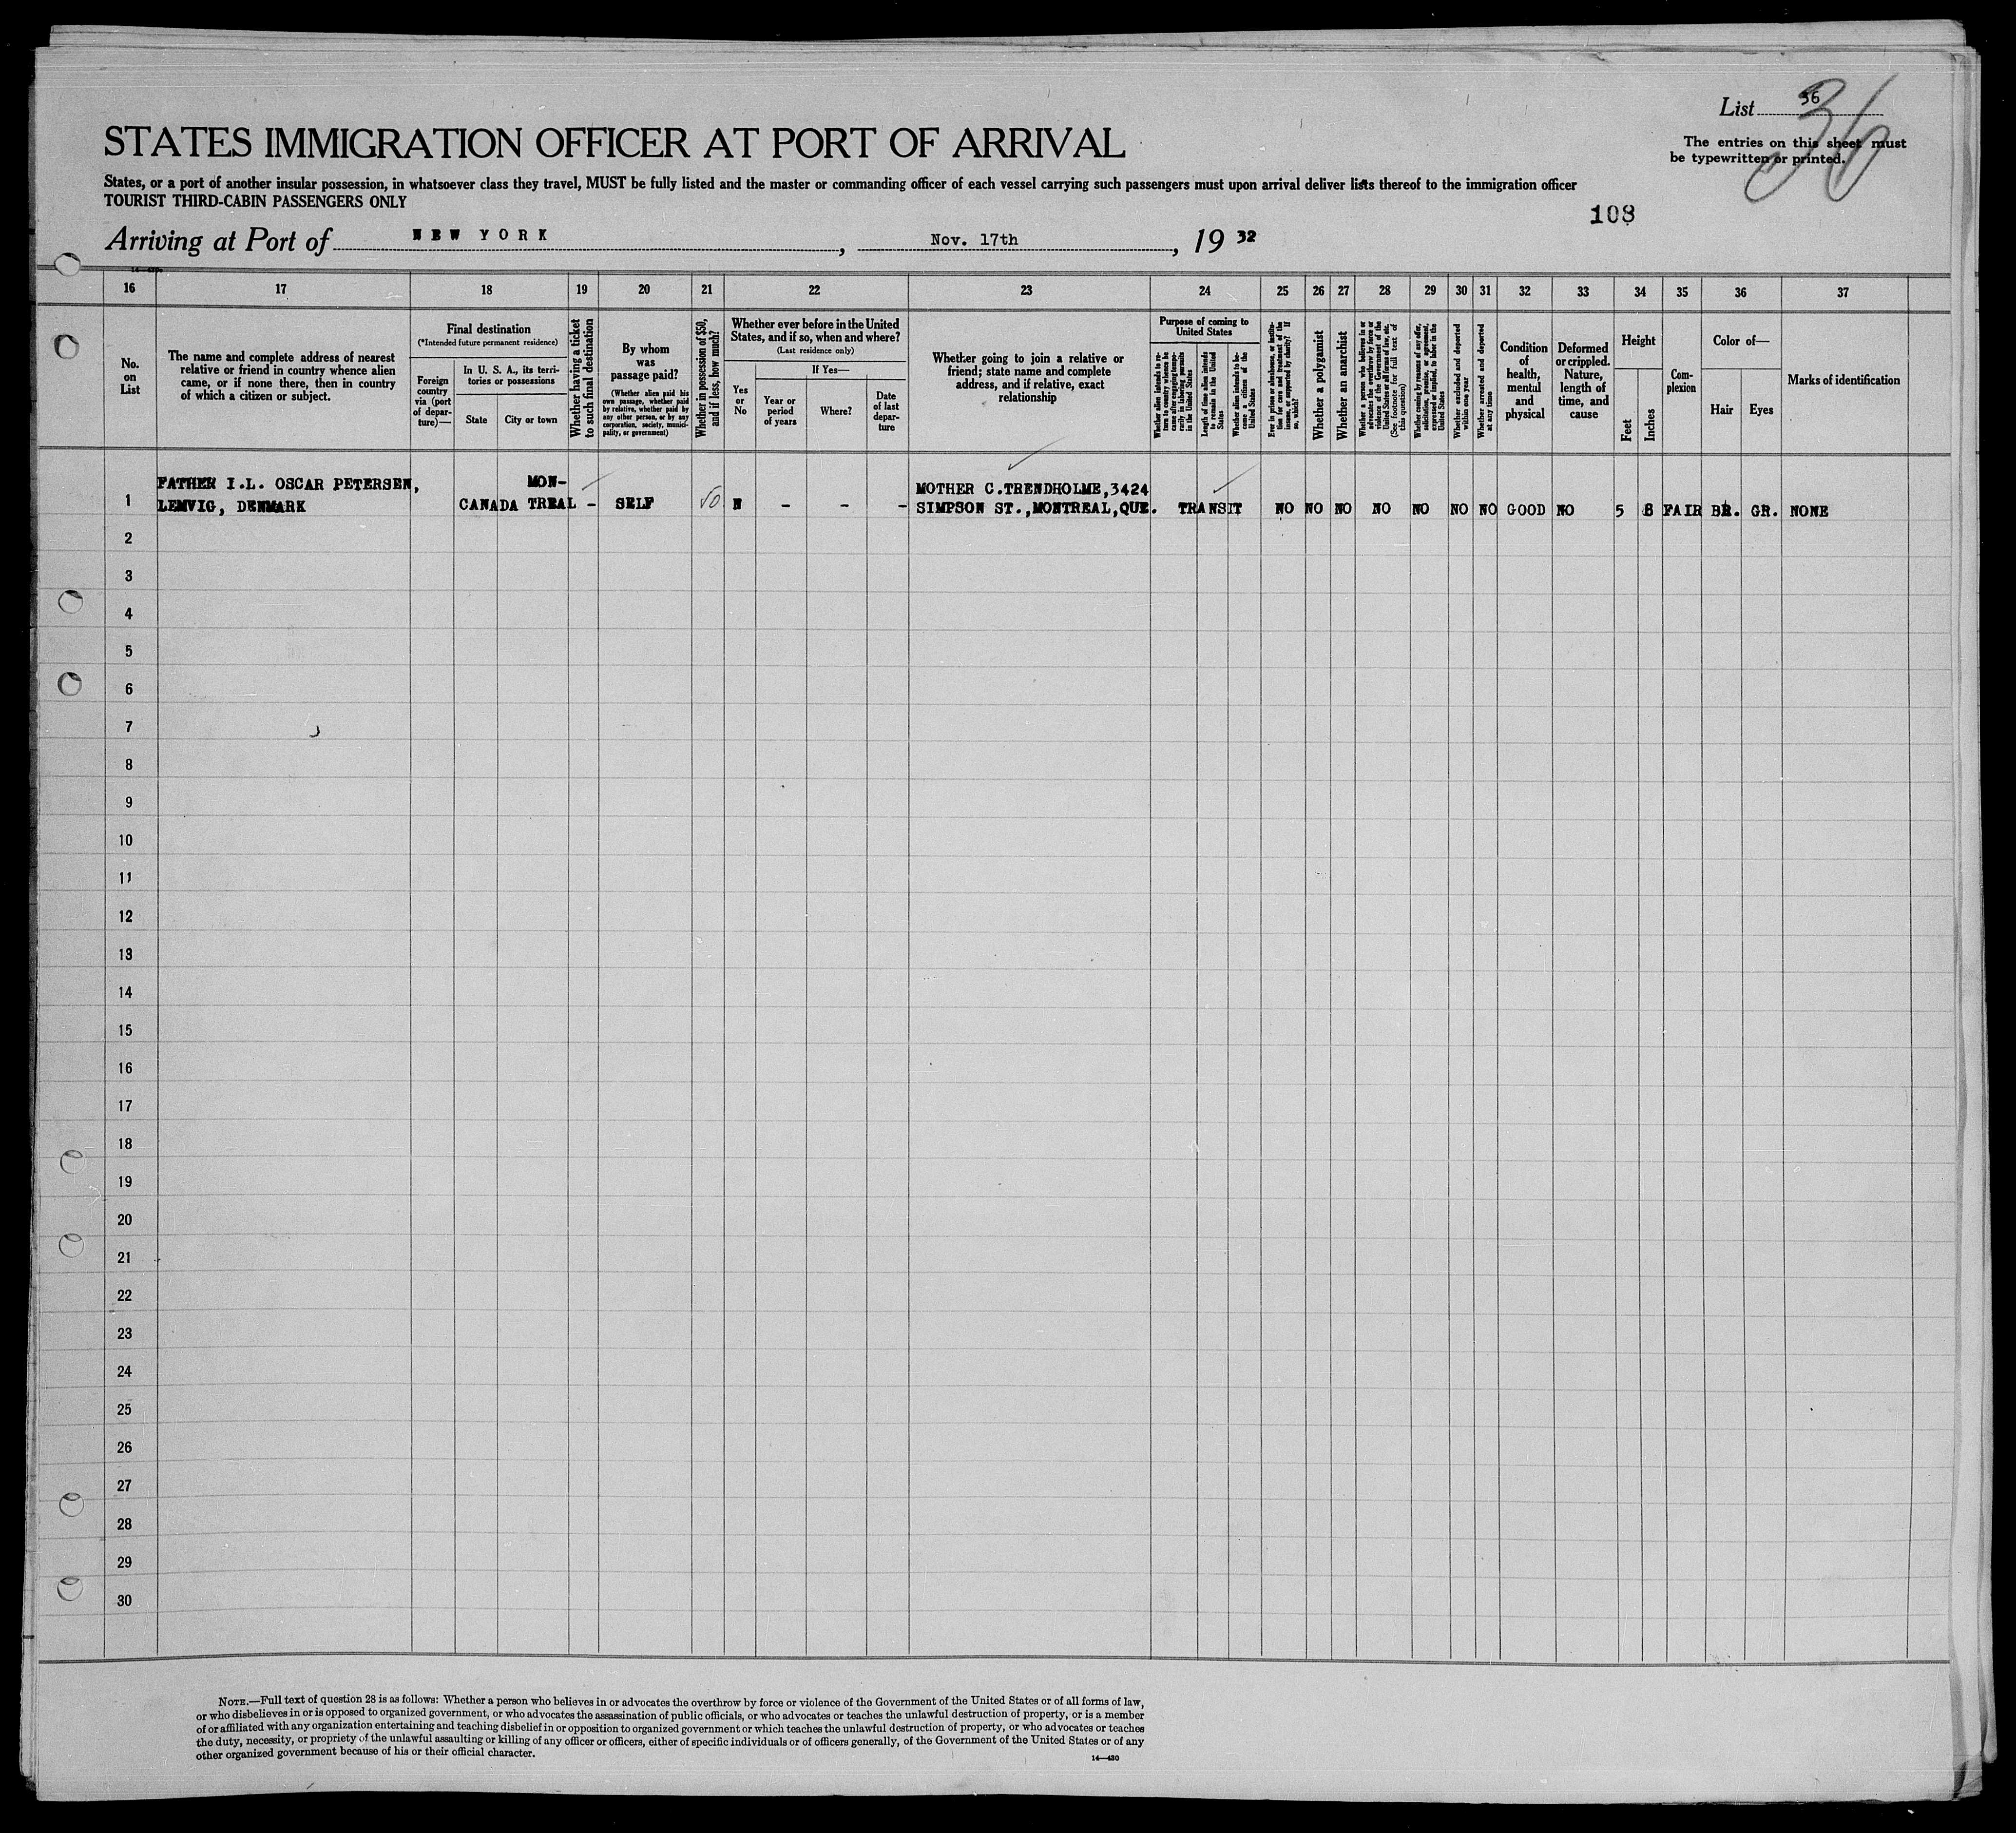 List 36
36
STATES IMMIGRATION OFFICER AT PORT OF ARRIVAL
The entries on this sheet must
be typewritten or printed.
States, or a port of another insular possession, in whatsoever class they travel, MUST be fully listed and the master or commanding officer of each vessel carrying such passengers must upon arrival deliver lists thereof to the immigration officer
TOURIST THIRD-CABIN PASSENGERS ONLY
108
Arriving at Port of NEW YORK, Nov. 17th, 1932
16 17 18 19 20 21 22 23 24 25 26 27 28 29 30 31 32 33 34 35 36 37
No.
on
List
The name and complete address of nearest
relative or friend in country whence alien
came, or if none there, then in country
of which a citizen or subject.
Final destination
(*Intended future permanent residence)
Foreign
country
via (port
of depar-
ture)—
In U. S. A., its terri-
tories or possessions
State
City or town
Whether having a ticket
to such final destination
By whom
was
passage paid?
(Whether alien paid his
own passage, whether paid
by relative, whether paid by
any other person, or by any
corporation, society, munici-
pality, or government)
Whether in possession of $50,
and if less, how much?
Whether ever before in the United
States, and if so, when and where?
(Last residence only)
Yes
or
No
If Yes—
Year or
period
of years
Where?
Date
of last
depar-
ture
Whether going to join a relative or
friend; state name and complete
address, and if relative, exact
relationship
Purpose of coming to
United States
Whether alien intends to re-
turn to country whence he
came after engaging tempo-
rarily in laboring pursuits
in the United States
Length of time alien intends
to remain in the United
States
Whether alien intends to be-
come a citizen of the
United States
Ever in prison or almshouse, or institu-
tion for care and treatment of the
insane, or supported by charity? If
so, which?
Whether a polygamist
Whether an anarchist
Whether a person who believes in or
advocates the overthrow by force or
violence of the Government of the
United States or all forms of law, etc.
(See footnote for full text of
this question)
Whether coming by reason of any offer,
solicitation, promise, or agreement,
expressed or implied, to labor in the
United States
Whether excluded and deported
within one year
Whether arrested and deported
at any time
Condition
of
health,
mental
and
physical
Deformed
or crippled.
Nature,
length of
time, and
cause
Height
Feet
Inches
Com-
plexion
Color of—
Hair
Eyes
Marks of identification
FATHER I.L. OSCAR PETERSEN, MON- MOTHER C.TRENDHOLME,3424
1 LEMVIG, DENMARK CANADA TREAL - SELF 50 N - - - SIMPSON ST.,MONTREAL,QUE. TRANSIT NO NO NO NO NO NO NO GOOD NO 5 8 FAIR BR. GR. NONE
2
3
4
5
6
7
8
9
10
11
12
13
14
15
16
17
18
19
20
21
22
23
24
25
26
27
28
29
30
NOTE.—Full text of question 28 is as follows: Whether a person who believes in or advocates the overthrow by force or violence of the Government of the United States or of all forms of law,
or who disbelieves in or is opposed to organized government, or who advocates the assassination of public officials, or who advocates or teaches the unlawful destruction of property, or is a member
of or affiliated with any organization entertaining and teaching disbelief in or opposition to organized government or which teaches the unlawful destruction of property, or who advocates or teaches
the duty, necessity, or propriety of the unlawful assaulting or killing of any officer or officers, either of specific individuals or of officers generally, of the Government of the United States or of any
other organized government because of his or their official character.
14—430